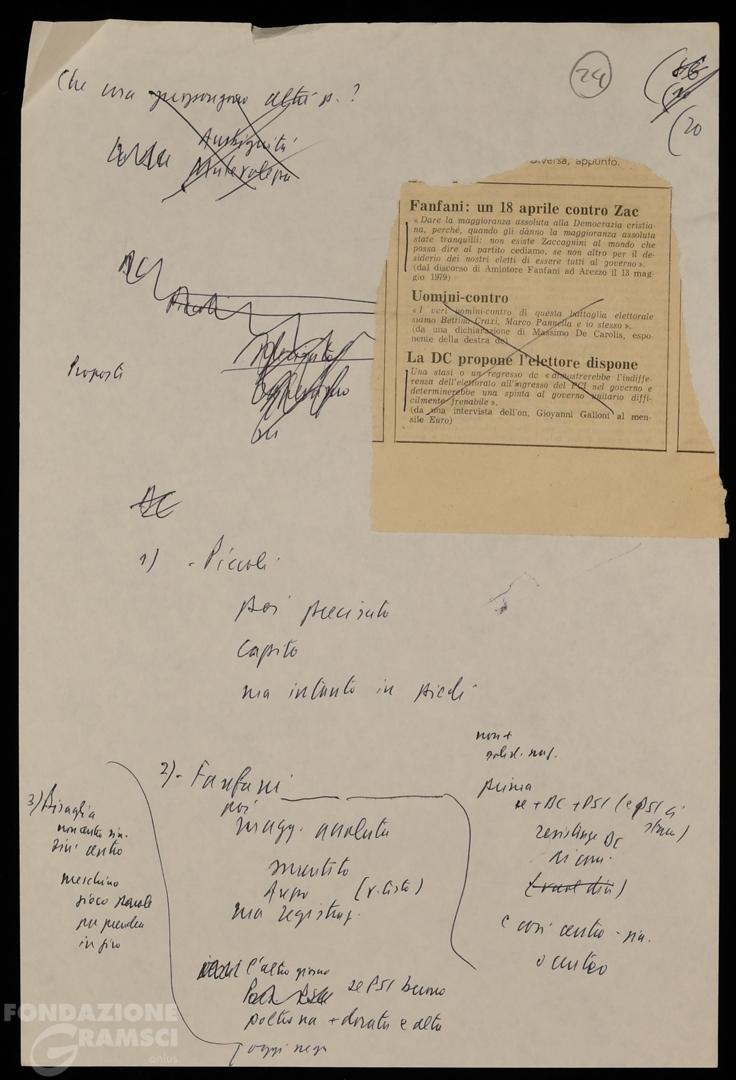 Che cosa propongono altri p. ?
24
(20
Ambiguità
diversa, appunto.
Fanfani: un 18 aprile contro Zac
« Dare la maggioranza assoluta alla Democrazia cristia-
na, perché, quando gli dànno la maggioranza assoluta
state tranquilli: non esiste Zaccagnini al mondo che
possa dire al partito cediamo, se non altro per il de-
siderio dei nostri eletti di essere tutti al governo ».
(dal discorso di Amintore Fanfani ad Arezzo il 13 mag-
gio 1979)
Uomini-contro
« I veri uomini-contro di questa battaglia elettorale
siamo Bettino Craxi, Marco Pannella e io stesso ».
(da una dichiarazione di Massimo De Carolis, espo-
nente della destra dc)
La DC propone l'elettore dispone
Una stasi o un regresso dc « dimostrerebbe l'indiffe-
renza dell'elettorato all'ingresso del PCI nel governo e
determinerebbe una spinta al governo unitario diffi-
cilmente frenabile ».
(da una intervista dell'on. Giovanni Galloni al men-
sile Euro)
DC
Piccoli
Proposti
DC
1) - Piccoli
poi precisato
capito
ma intanto in piedi
2) - Fanfani
poi
magg. assoluta
smentito
Arezzo (v. testo)
ma registraz.
l'altro giorno
se PSI buono
poltrona + dorata e alta
oggi nega
3) Bisaglia
non centro sin.
ma centro
meschino
gioco
per prendere
in giro
non +
solid. naz.
prima
se + DC + PSI (e PSI ci
resistenze DC
e così centro-sin.
o centro
FONDAZIONE
GRAMSCI
onlus